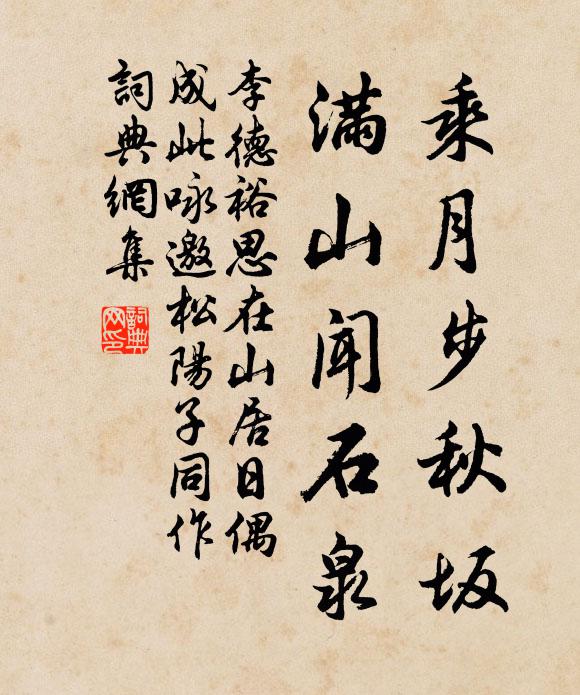 乘月步秋坂
滿山聞石泉
李德裕思在山居日偶
成此咏邀松陽子同作
詞典網集
詞典网印